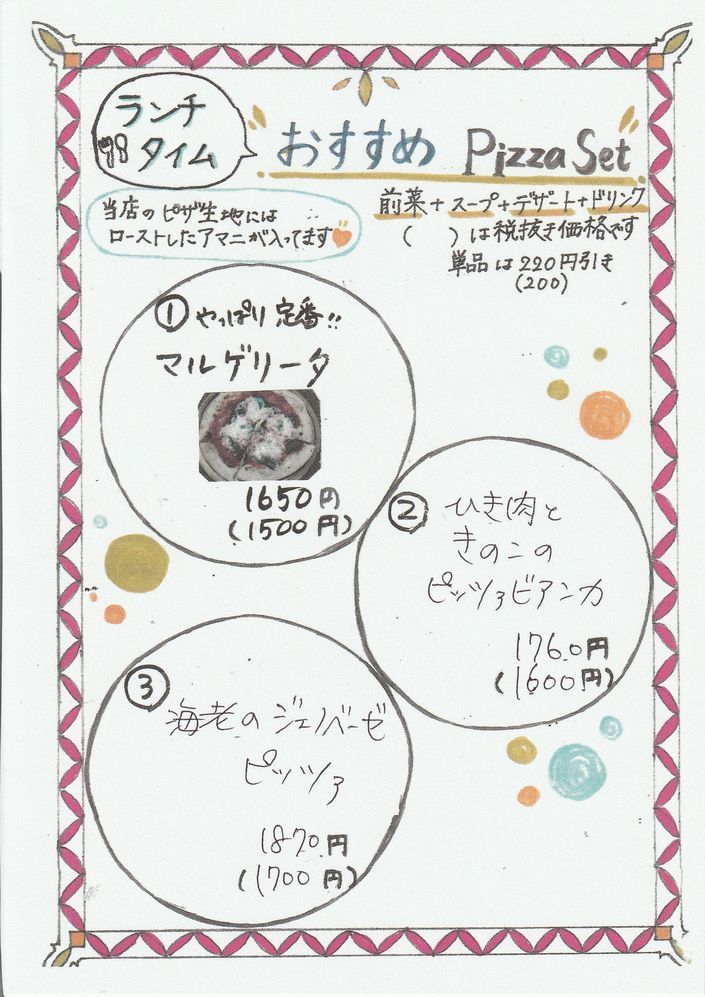 ランチ
タイム
おすすめ Pizza Set
当店のピザ生地には
ローストしたアマニが入ってます
前菜+スープ+デザート+ドリンク
( )は税抜き価格です
単品は220円引き
(200)
① やっぱり定番!!
マルゲリータ
1650円
(1500円)
② ひき肉と
きのこの
ピッツァビアンカ
1760円
(1600円)
③
海老のジェノベーゼ
ピッツァ
1870円
(1700円)